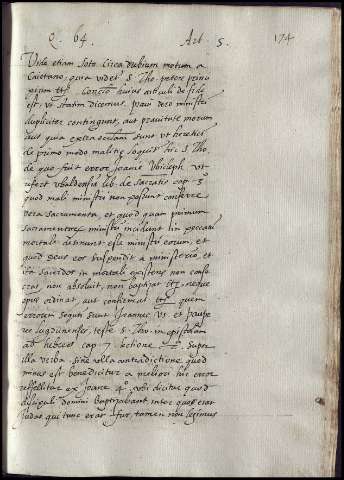 Q. 64. Art. 5. 174
Vide etiam Soto circa dubium motum a
Caietano, quia videt S. Tho. petere princi
pium Conclo huius articuli de fide
est, ut statim dicemus, pravi vero ministri
dupliciter contingunt, aut pravitate morum
aut quia extra ecclam sunt ut heretici
de primo modo malitię loquit hic S. Tho
de quo fuit error Joanis Vbicleph ut
refert Vbaldensis lib. de sacratis cap. 3.
quod mali ministri non possunt conferre
vera sacramenta, et quod quam primum
sacramentorũ ministri incidunt in peccatũ
mortale desinunt esse ministri eorum, et
quod Deus eos suspendit a ministerio, et
ita sacerdos in mortali existens non conse
crat, non absoluit, non baptizat etc, neque
epus ordinat, aut confirmat etc quem
errorem sequti sunt Joannes Vs et paupe
res lugdunenses, teste S. Tho. in epistolam
ad hebreos cap. 7. lectione 2. supra
illa verba. sine ulla contradictione quod
minus est benedicitur a meliori hic error
refellitur ex Joane 4. ubi dicitur quod
discipuli domini baptizabant, inter quos erat
Judas qui tunc erat fur, tamen non legimus